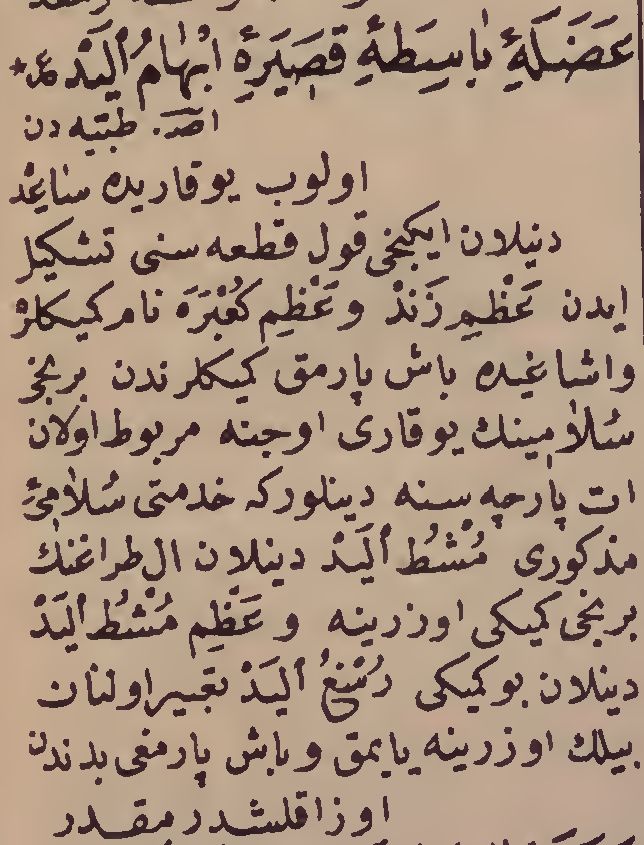 عَضَلَهِٔ بَاسِطَهِٔ قَصِيَرِهِٔ اِبْهَامُ اَلْيَدْ
اصط. طبيه دن
اولوب يوقاريده ساعِدْ
دنيلان ايكنجى قول قطعه سنى تشكيل
ايدن عَظْمِ زَنَدْ و عَظْمِ كُعْبَرَه نام كميكلرْ
واشاغيده باش پارمق كميكلرندن برنجى
سُلاٰمينك يوقارى اوجنه مربوط اولان
ات پارچه سنه دينلوركه خدمتى سُلاٰمِىِٔ
مذكورى مُشْطُ اَلْيَدْ دينلان ال طراغنك
برنجى كميكى اوزرينه و عَظْمِ مُشْطُ اَلْيَدْ
دينلان بوكميكى رُسْغُ اَلْيَدْ تعبير اولنان
بيلك اوزرينه يايمق و باش پارمغى بدندن
اوزاقلشدرمقدر